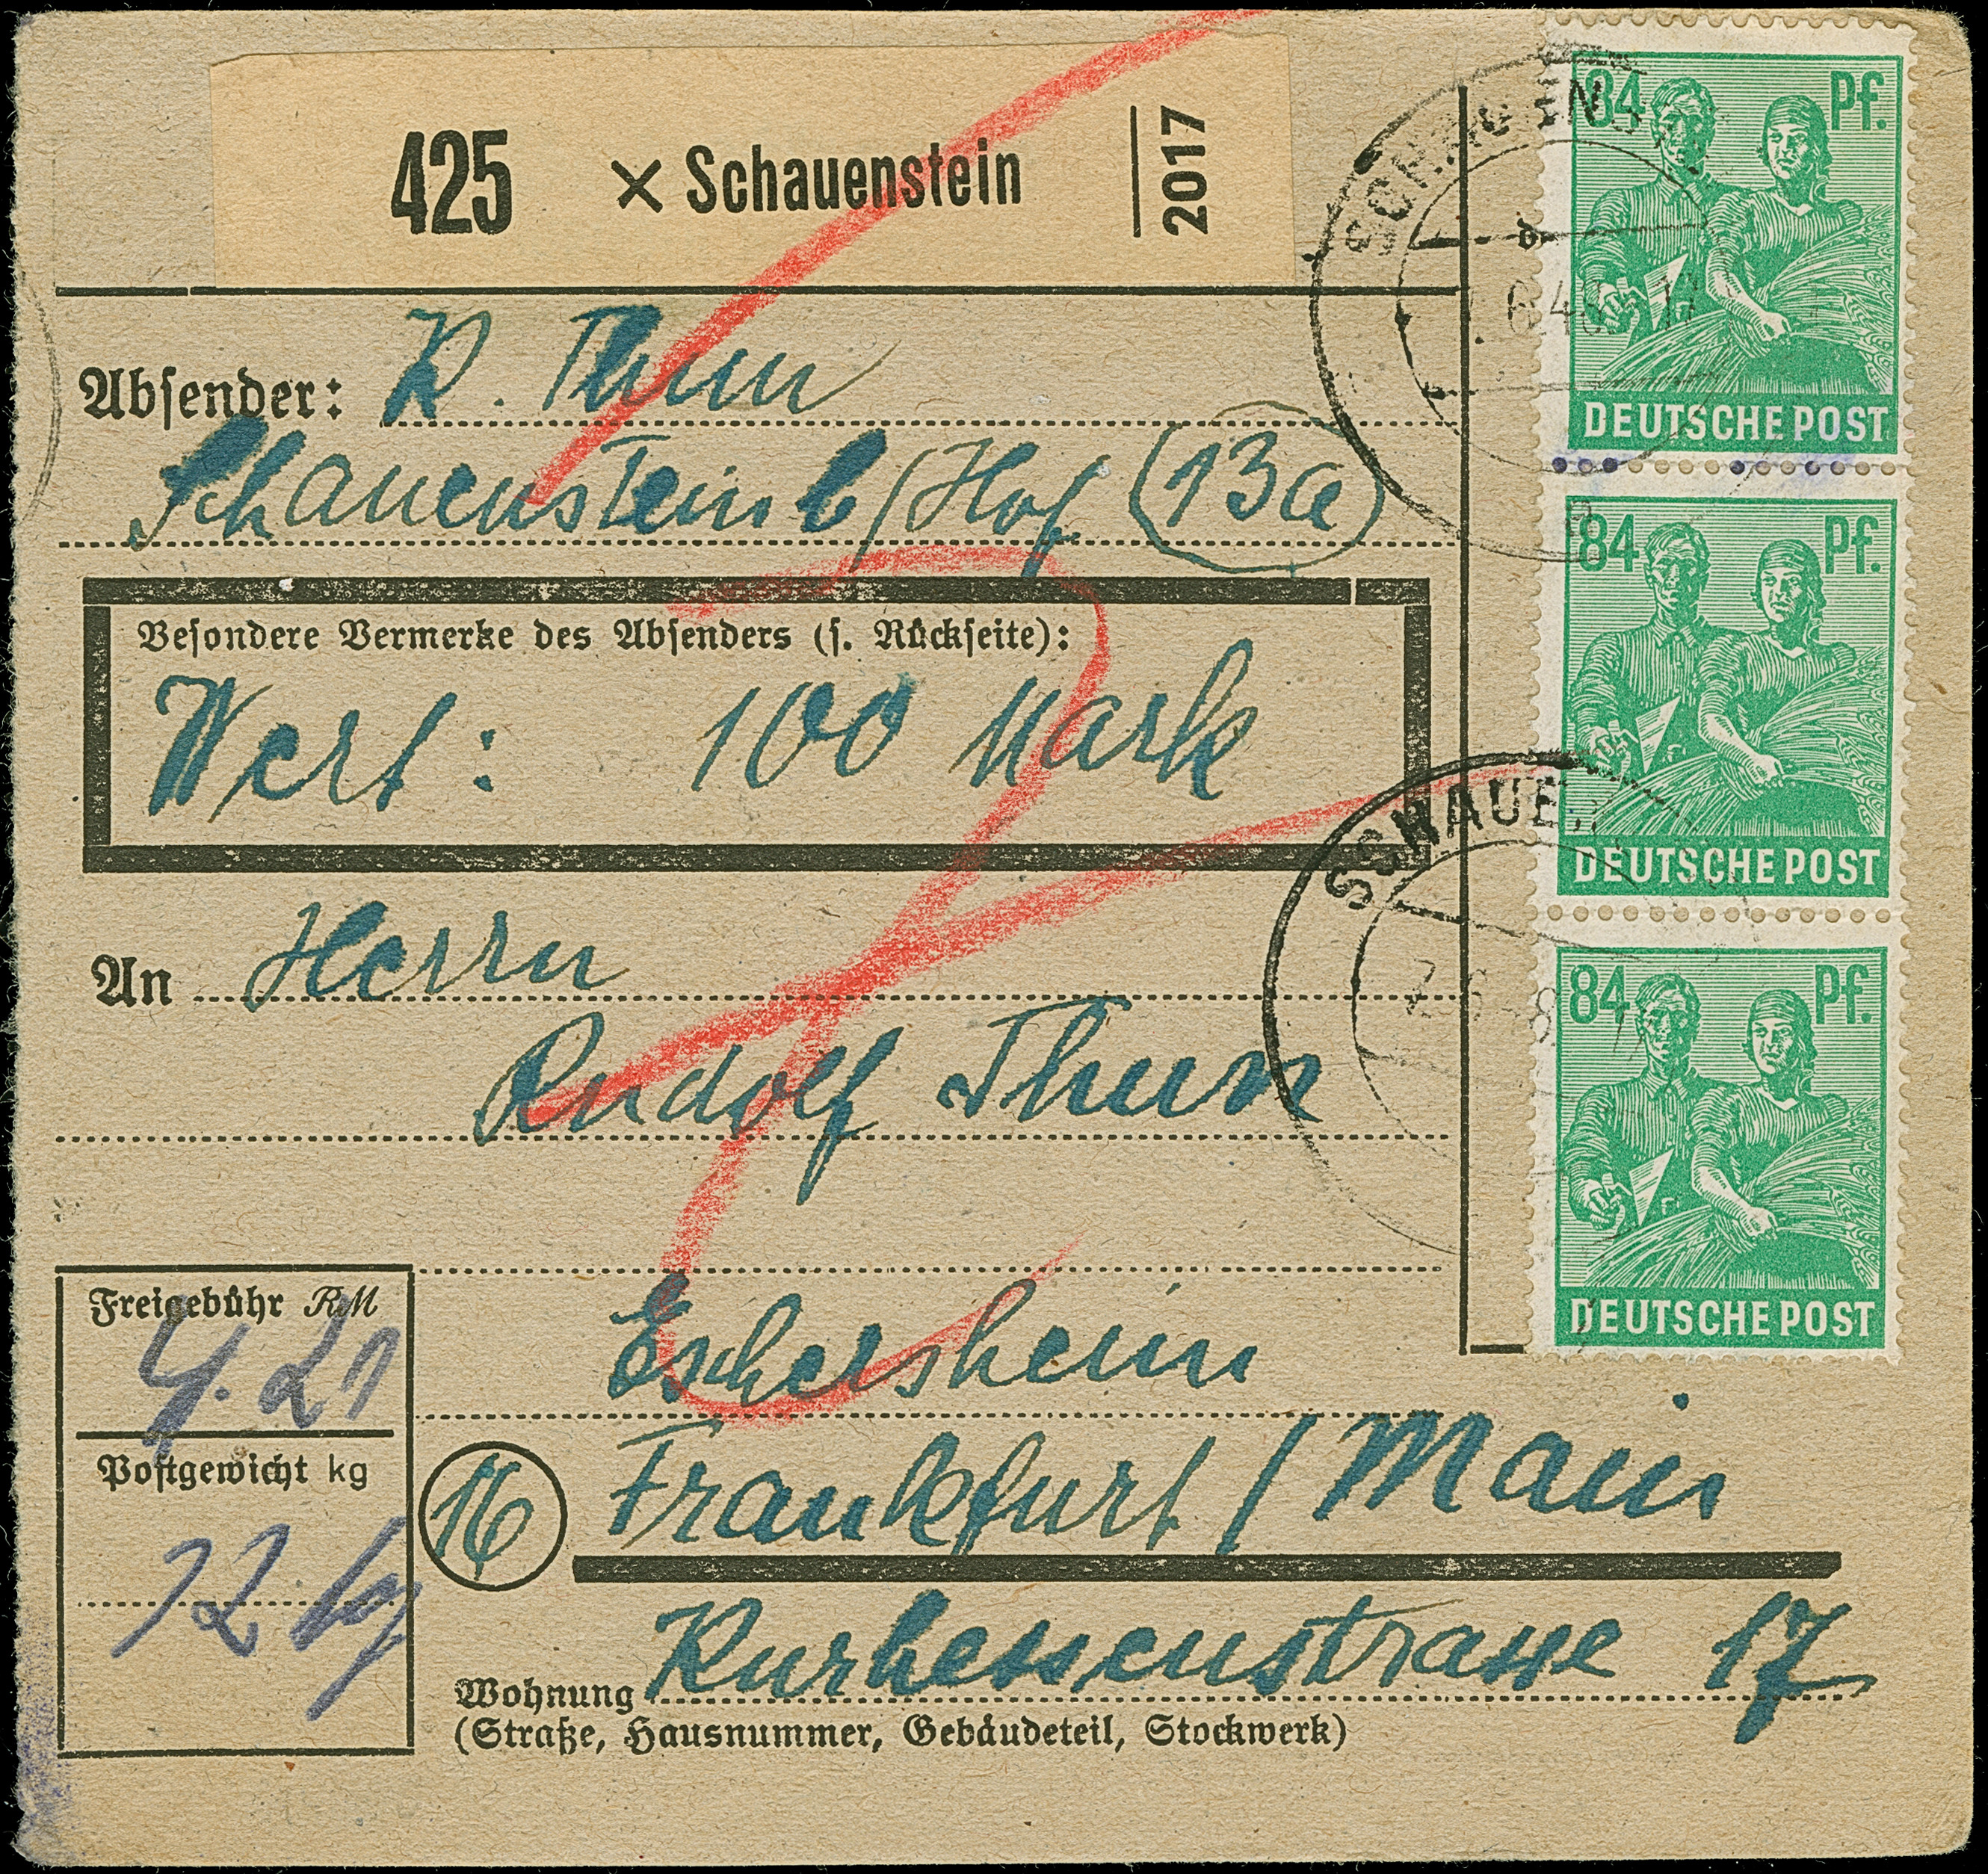 425 × Schauenstein 2017
Absender: R. Thun
Schauenstein b/Hof (13a)
Besondere Vermerke des Absenders (s. Rückseite):
Wert: 100 Mark
An Herrn
Rudolf Thun
Eschersheim
16 Frankfurt/Main
Kurhessenstrasse 17
Wohnung
(Straße, Hausnummer, Gebäudeteil, Stockwerk)
Freigebühr RM
4.21
Postgewicht kg
12 kg
84 Pf.
DEUTSCHE POST
84 Pf.
DEUTSCHE POST
84 Pf.
DEUTSCHE POST
SCHAUENS
b
SCHAUE